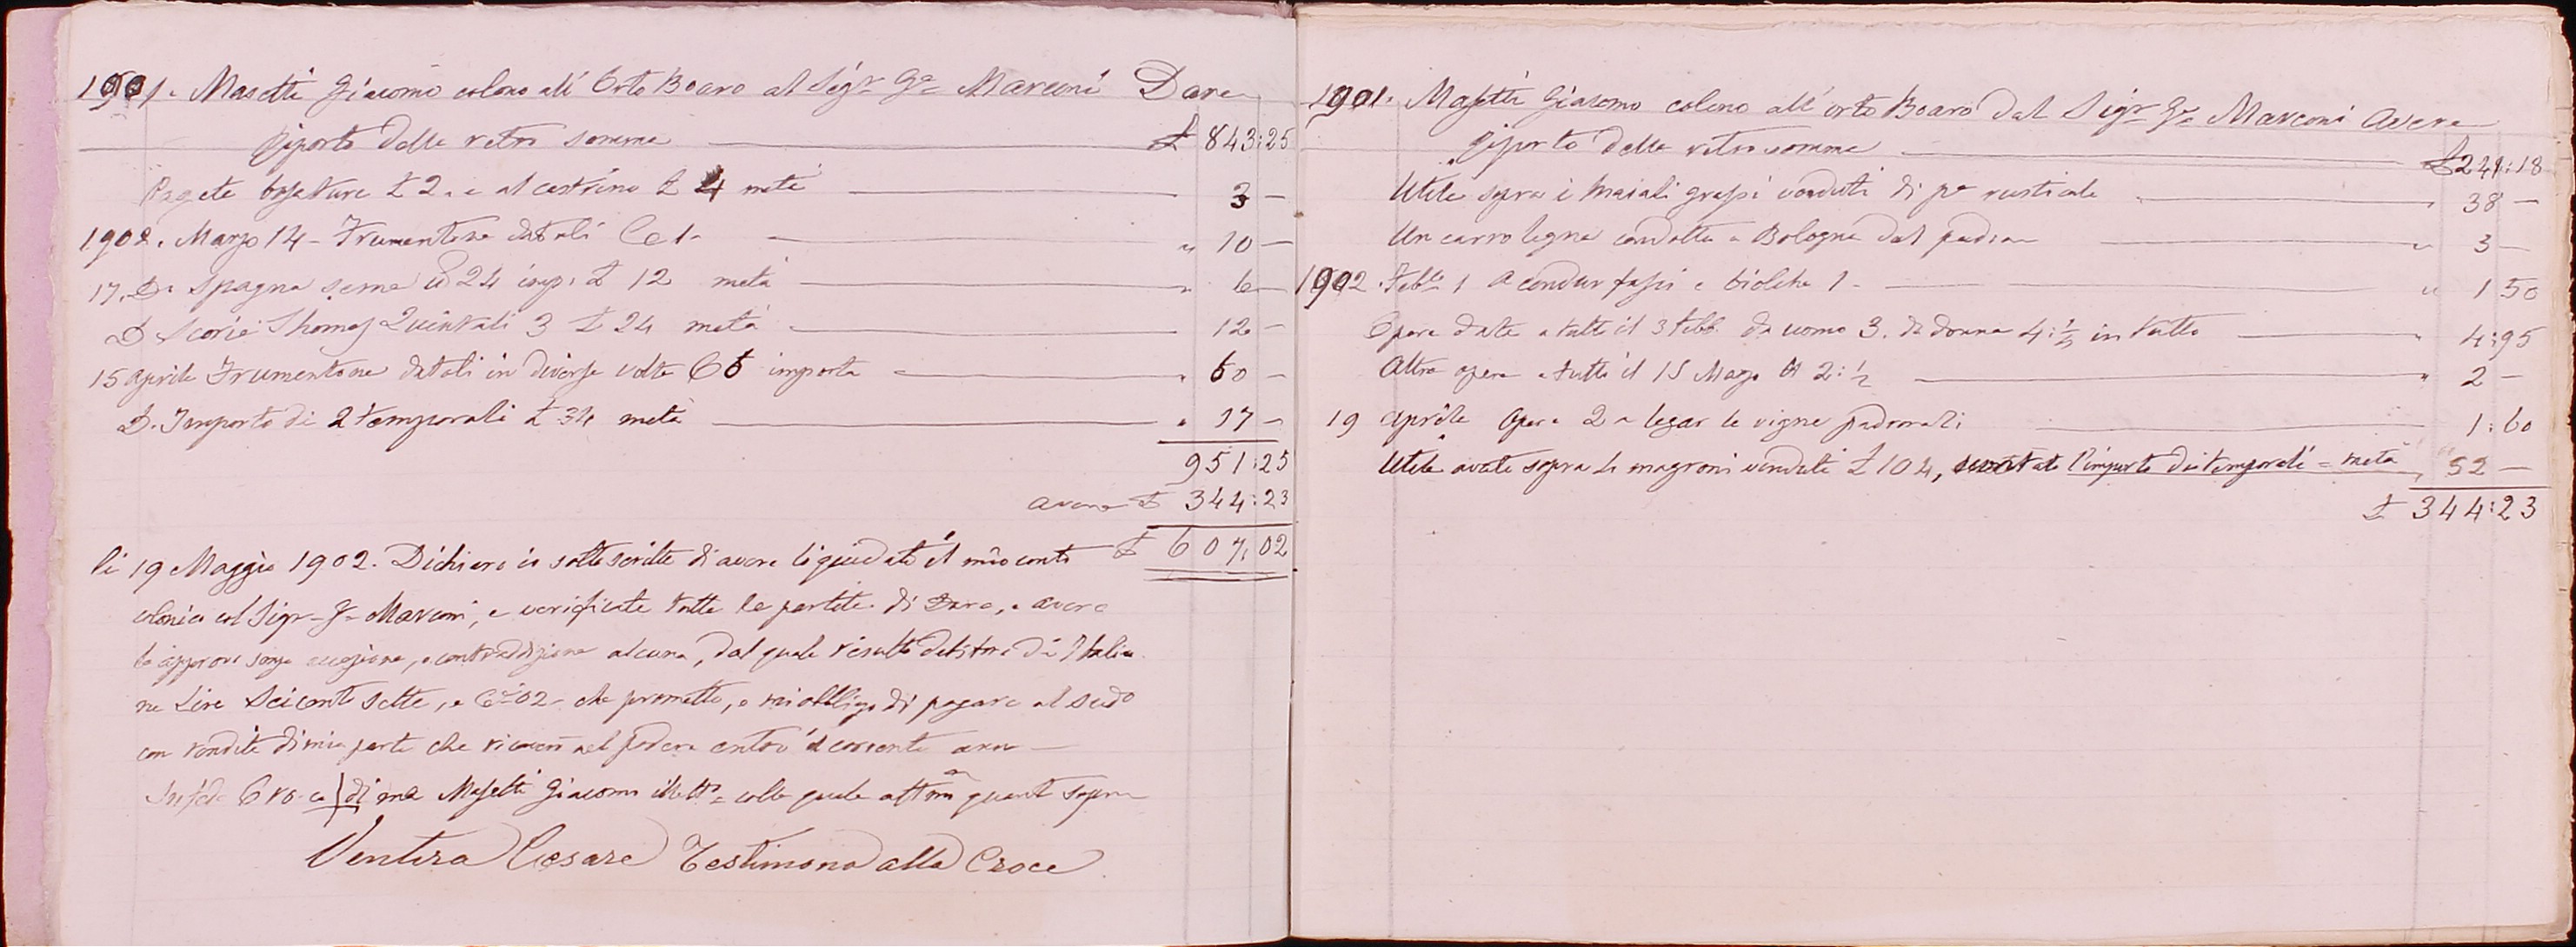 1901. Masetti Giacomo colono all'Orto Boaro al Sigr Ge Marconi Dare
Riporto delle retro somme £ 843:25
Pagate tosature £ 2. e al castrino £ 4 metà 3 —
1902. Marzo 14 - Frumentone datoli C 1 - " 10 —
17. D° Spagna seme 24 imp. £ 12 metà " 6 —
D Scorie Thomas Quintali 3 £ 24 metà 12 —
15 Aprile Frumentone datoli in diverse volte C 6 importa " 60 —
D. Importo di 2 temporali £ 34 metà " 17 —
951:25
avere £ 344:23
£ 607,02
li 19 Maggio 1902. Dichiaro io sottoscritto di avere liquidato il mio conto
colonico col Sigr Ge Marconi, e verificate tutte le partite di Dare, e avere
le approvo senza eccezione, o contraddizione alcuna, dal quale risulto debitore di Italia
ne Lire Seicento sette, e Cmi 02 - che prometto, e mi obbligo di pagare al sudo
con rendite di mia parte che ricaverò nel podere entro il corrente anno —
In fede Cro-ce di me Masetti Giacomo illetto colla quale affermo quanto sopra
Ventura Cesare Testimono alla Croce
1901. Masetti Giacomo colono all'orto Boaro dal Sigr Ge Marconi Avere
Riporto delle retro somme £ 241:18
Utile sopra i maiali grassi venduti di pe rusticale " 38 —
Un carro legna condotta a Bologna dal padron " 3 —
1902. Febb 1 A condur fassi e bioche 1 - " 1 50
Opere date a tutto il 3 Febb. da uomo 3. da donna 4:½ in tutto " 4:95
Altre opere a tutto il 15 Marzo 2:½ " 2 —
19 Aprile Opere 2 a legar le vigne padronali 1:60
Utile avuto sopra 4 magroni venduti £ 104, scontato l'importo dei temporali = metà " 52 —
£ 344:23